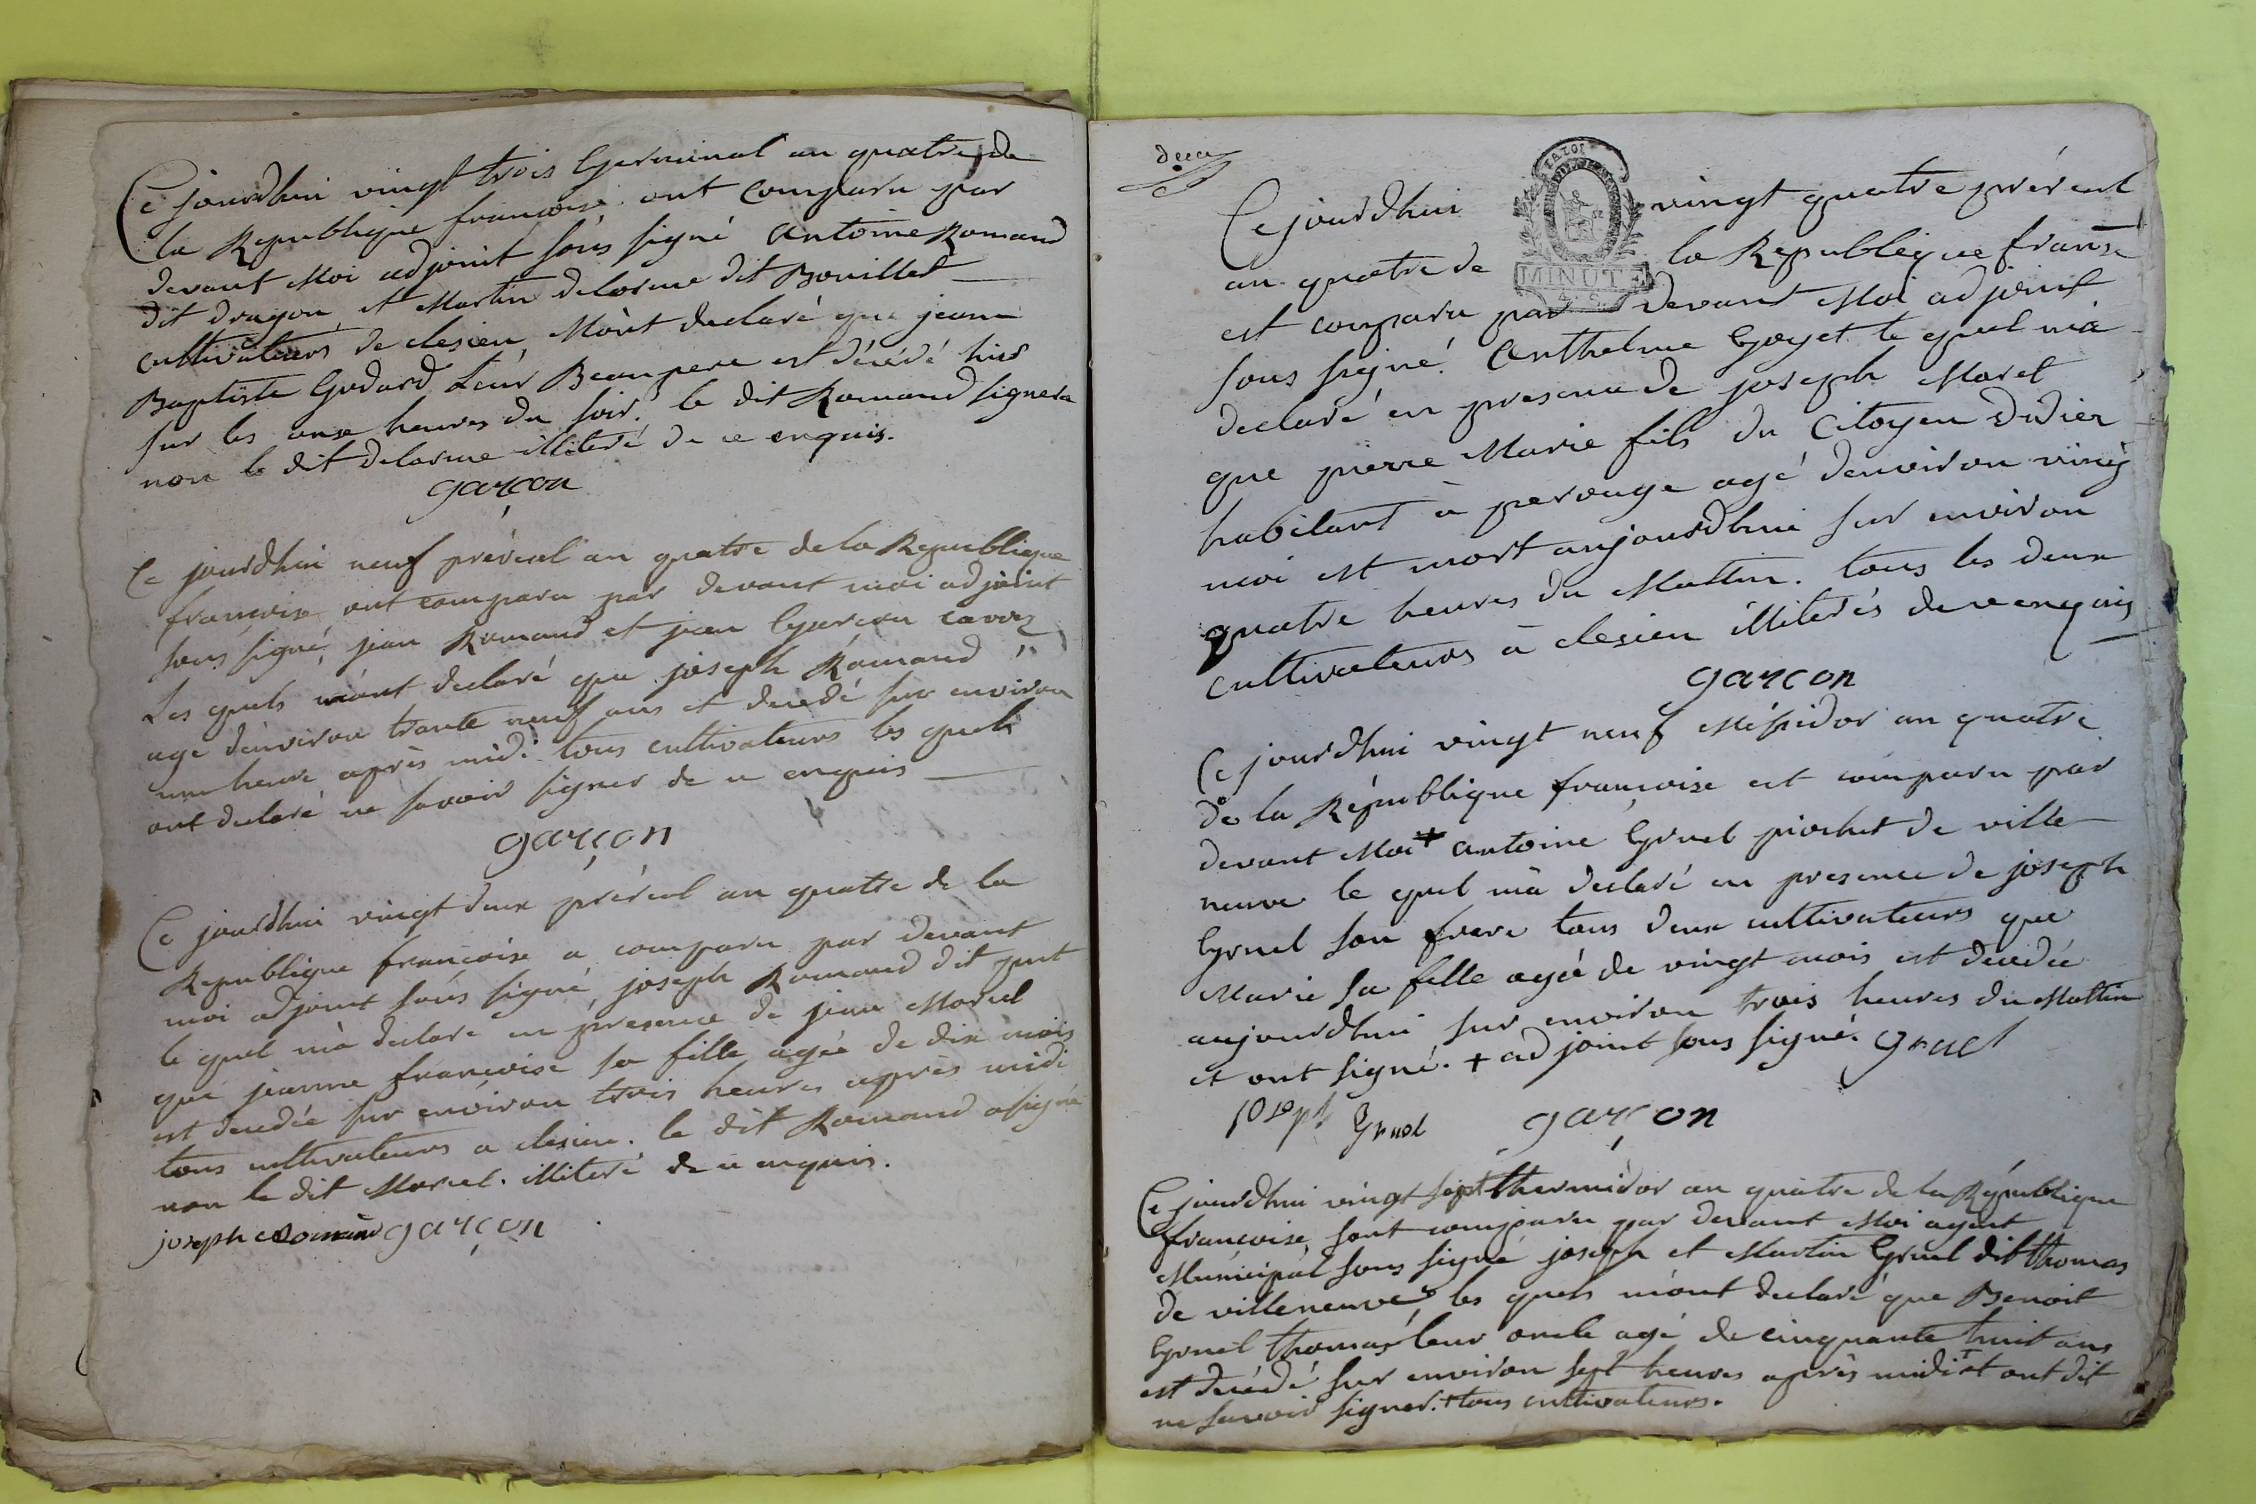 Ce jourdhui vingt trois Germinal an quatre de
la Republique francoise ont comparu par
devant Moi adjoint sous signé Antoine Romand
dit dragon, et Martin delorme dit Bouillet
cultivateurs de clesieu, M'ont declaré que jean
Baptiste Godard Leur Beaupere est décédé hier
sur les onse heures du soir. le dit Romand signera
non le dit delorme illiteré de ce enquis.
garçon
Ce jourdhui neuf préréal an quatre de la Republique
francoise ont comparu par devant moi adjoint
sous signé, jean Romand et jean
Les quels m'ont declaré que joseph Romand
age denviron trante neuf ans et decedé sur environ
une heure après midi. tous cultivateurs les quels
ont declaré ne savoir signer de ce enquis
garçon
Ce jourdhui vingt deux préréal an quatre de la
Republique francoise a comparu par devant
moi adjoint sous signé, joseph Romand dit
le quel m'à declare en presence de jean Morel
que jeanne francoise sa fille agée de dix mois
est decedée sur environ trois heures après midi
tous cultivateurs a clesieu. le dit Romand a signé
non le dit Morel. illiteré de ce enquis.
joseph Romand garçon
Ce jourdhui vingt quatre préréal
an quatre de la Republique
MINUTE
est comparu par devant Moi adjoint
sous signé. Anthelme Goyet le quel m'à
declaré en presence de joseph Morel
que pierre Marie fils du Citoyen Didier
habitant à perouge agé denviron
moi est mort aujourdhui sur environ
quatre heures du Mattin. tous les deux
cultivateurs à clesieu illiterés de ce enquis
garcon
Ce jourdhui vingt neuf Méssidor an quatre
de la République francoise est comparu par
devant Moi + antoine Gruel piochet de ville
neuve le quel m'à declaré en presence de joseph
Gruel son frere tous deux cultivateurs que
Marie sa fille agée de vingt mois est decedée
aujourdhui sur environ trois heures du Mattin
et ont signé. + adjoint sous signé. gruel
joseph Gruel garçon
Ce jourdhui vingt sept thermidor an quatre de la République
francoise, sont comparu par devant Moi agent
Municipal sous signé joseph et Martin Gruel dit thomas
de villeneuve, les quels m'ont declaré que Benoit
Gruel thomas leur oncle agé de cinquante huit ans
est decédé sur environ sept heures après midi + et ont dit
ne savoir signer. + tous cultivateurs.